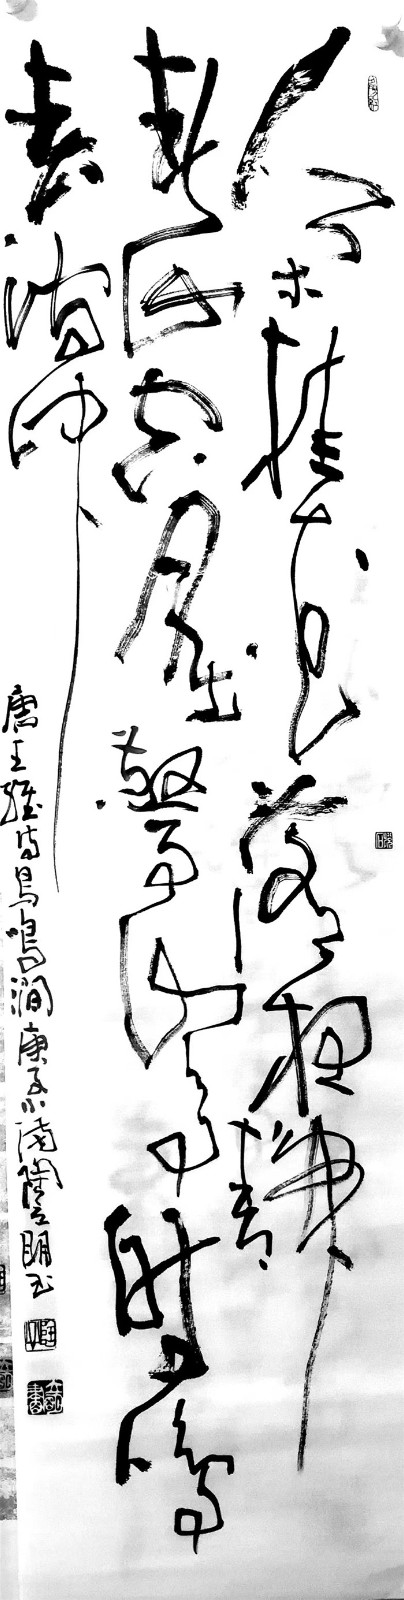 人闲桂花落夜静
春山空月出惊山鸟时鸣
春涧中
唐王维诗鸟鸣涧庚子小满陶立明书